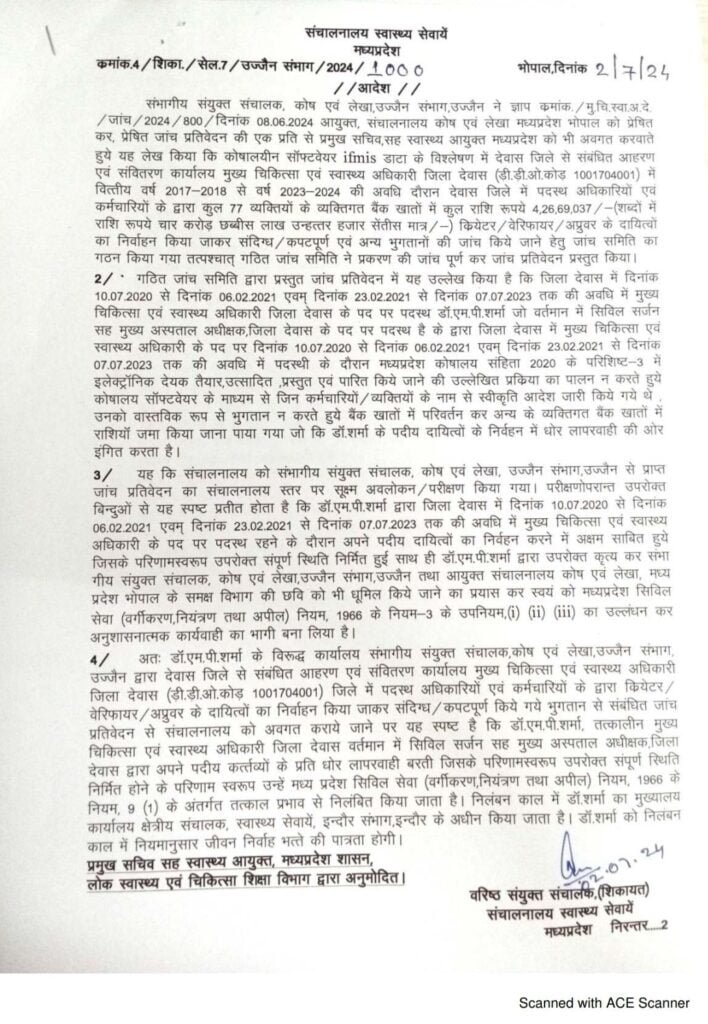 संचालनालय स्वास्थ्य सेवायें
मध्यप्रदेश
क्रमांक.4/शिका./सेल.7/उज्जैन संभाग/2024/1000 भोपाल,दिनांक 2/7/24
//आदेश//
संभागीय संयुक्त संचालक, कोष एवं लेखा,उज्जैन संभाग,उज्जैन ने ज्ञाप क्रमांक./मु.चि.स्वा.अ.दे.
/जांच/2024/800/दिनांक 08.06.2024 आयुक्त, संचालनालय कोष एवं लेखा मध्यप्रदेश भोपाल को प्रेषित
कर, प्रेषित जांच प्रतिवेदन की एक प्रति से प्रमुख सचिव,सह स्वास्थ्य आयुक्त मध्यप्रदेश को भी अवगत करवाते
हुये यह लेख किया कि कोषालयीन सॉफ्टवेयर ifmis डाटा के विश्लेषण में देवास जिले से संबंधित आहरण
एवं संवितरण कार्यालय मुख्य चिकित्सा एवं स्वास्थ्य अधिकारी जिला देवास (डी.डी.ओ.कोड 1001704001) में
वित्तीय वर्ष 2017-2018 से वर्ष 2023-2024 की अवधि दौरान देवास जिले में पदस्थ अधिकारियों एवं
कर्मचारियों के द्वारा कुल 77 व्यक्तियों के व्यक्तिगत बैंक खातों में कुल राशि रूपये 4,26,69,037/-(शब्दों में
राशि रूपये चार करोड़ छब्बीस लाख उन्हत्तर हजार सेंतीस मात्र/-) क्रियेटर/वेरिफायर/अप्रुवर के दायित्वों
का निर्वाहन किया जाकर संदिग्ध/कपटपूर्ण एवं अन्य भुगतानों की जांच किये जाने हेतु जांच समिति का
गठन किया गया तत्पश्चात् गठित जांच समिति ने प्रकरण की जांच पूर्ण कर जांच प्रतिवेदन प्रस्तुत किया।
2/ गठित जांच समिति द्वारा प्रस्तुत जांच प्रतिवेदन में यह उल्लेख किया है कि जिला देवास में दिनांक
10.07.2020 से दिनांक 06.02.2021 एवम् दिनांक 23.02.2021 से दिनांक 07.07.2023 तक की अवधि में मुख्य
चिकित्सा एवं स्वास्थ्य अधिकारी जिला देवास के पद पर पदस्थ डॉ.एम.पी.शर्मा जो वर्तमान में सिविल सर्जन
सह मुख्य अस्पताल अधीक्षक,जिला देवास के पद पर पदस्थ है के द्वारा जिला देवास में मुख्य चिकित्सा एवं
स्वास्थ्य अधिकारी के पद पर दिनांक 10.07.2020 से दिनांक 06.02.2021 एवम् दिनांक 23.02.2021 से दिनांक
07.07.2023 तक की अवधि में पदस्थी के दौरान मध्यप्रदेश कोषालय संहिता 2020 के परिशिष्ट-3 में
इलेक्ट्रॉनिक देयक तैयार,उत्सादित ,प्रस्तुत एवं पारित किये जाने की उल्लेखित प्रक्रिया का पालन न करते हुये
कोषालय सॉफ्टवेयर के माध्यम से जिन कर्मचारियों/व्यक्तियों के नाम से स्वीकृति आदेश जारी किये गये थे ,
उनको वास्तविक रूप से भुगतान न करते हुये बैंक खातों में परिवर्तन कर अन्य के व्यक्तिगत बैंक खातों में
राशियॉं जमा किया जाना पाया गया जो कि डॉ.शर्मा के पदीय दायित्वों के निर्वहन में धोर लापरवाही की ओर
इंगित करता है।
3/ यह कि संचालनालय को संभागीय संयुक्त संचालक, कोष एवं लेखा, उज्जैन संभाग,उज्जैन से प्राप्त
जांच प्रतिवेदन का संचालनालय स्तर पर सूक्ष्म अवलोकन/परीक्षण किया गया। परीक्षणोपरान्त उपरोक्त
बिन्दुओं से यह स्पष्ट प्रतीत होता है कि डॉ.एम.पी.शर्मा द्वारा जिला देवास में दिनांक 10.07.2020 से दिनांक
06.02.2021 एवम् दिनांक 23.02.2021 से दिनांक 07.07.2023 तक की अवधि में मुख्य चिकित्सा एवं स्वास्थ्य
अधिकारी के पद पर पदस्थ रहने के दौरान अपने पदीय दायित्वों का निर्वहन करने में अक्षम साबित हुये
जिसके परिणामस्वरूप उपरोक्त संपूर्ण स्थिति निर्मित हुई साथ ही डॉ.एम.पी.शर्मा द्वारा उपरोक्त कृत्य कर संभा
गीय संयुक्त संचालक, कोष एवं लेखा,उज्जैन संभाग,उज्जैन तथा आयुक्त संचालनालय कोष एवं लेखा, मध्य
प्रदेश भोपाल के समक्ष विभाग की छवि को भी धूमिल किये जाने का प्रयास कर स्वयं को मध्यप्रदेश सिविल
सेवा (वर्गीकरण,नियंत्रण तथा अपील) नियम, 1966 के नियम-3 के उपनियम,(i) (ii) (iii) का उल्लंधन कर
अनुशासनात्मक कार्यवाही का भागी बना लिया है।
4/ अतः डॉ.एम.पी.शर्मा के विरूद्ध कार्यालय संभागीय संयुक्त संचालक,कोष एवं लेखा,उज्जैन संभाग,
उज्जैन द्वारा देवास जिले से संबंधित आहरण एवं संवितरण कार्यालय मुख्य चिकित्सा एवं स्वास्थ्य अधिकारी
जिला देवास (ड़ी.ड़ी.ओ.कोड़ 1001704001) जिले में पदस्थ अधिकारियों एवं कर्मचारियों के द्वारा क्रियेटर/
वेरिफायर/अप्रुवर के दायित्वों का निर्वाहन किया जाकर संदिग्ध/कपटपूर्ण किये गये भुगतान से संबंधित जांच
प्रतिवेदन से संचालनालय को अवगत कराये जाने पर यह स्पष्ट है कि डॉ.एम.पी.शर्मा, तत्कालीन मुख्य
चिकित्सा एवं स्वास्थ्य अधिकारी जिला देवास वर्तमान में सिविल सर्जन सह मुख्य अस्पताल अधीक्षक,जिला
देवास द्वारा अपने पदीय कर्त्तव्यों के प्रति धोर लापरवाही बरती जिसके परिणामस्वरूप उपरोक्त संपूर्ण स्थिति
निर्मित होने के परिणाम स्वरूप उन्हें मध्य प्रदेश सिविल सेवा (वर्गीकरण,नियंत्रण तथा अपील) नियम, 1966 के
नियम, 9 (1) के अंतर्गत तत्काल प्रभाव से निलंबित किया जाता है। निलंबन काल में डॉ.शर्मा का मुख्यालय
कार्यालय क्षेत्रीय संचालक, स्वास्थ्य सेवायें, इन्दौर संभाग,इन्दौर के अधीन किया जाता है। डॉ.शर्मा को निलंबन
काल में नियमानुसार जीवन निर्वाह भत्ते की पात्रता होगी।
प्रमुख सचिव सह स्वास्थ्य आयुक्त, मध्यप्रदेश शासन,
लोक स्वास्थ्य एवं चिकित्सा शिक्षा विभाग द्वारा अनुमोदित।
02.07.24
वरिष्ठ संयुक्त संचालक,(शिकायत)
संचालनालय स्वास्थ्य सेवायें
मध्यप्रदेश निरन्तर....2
Scanned with ACE Scanner